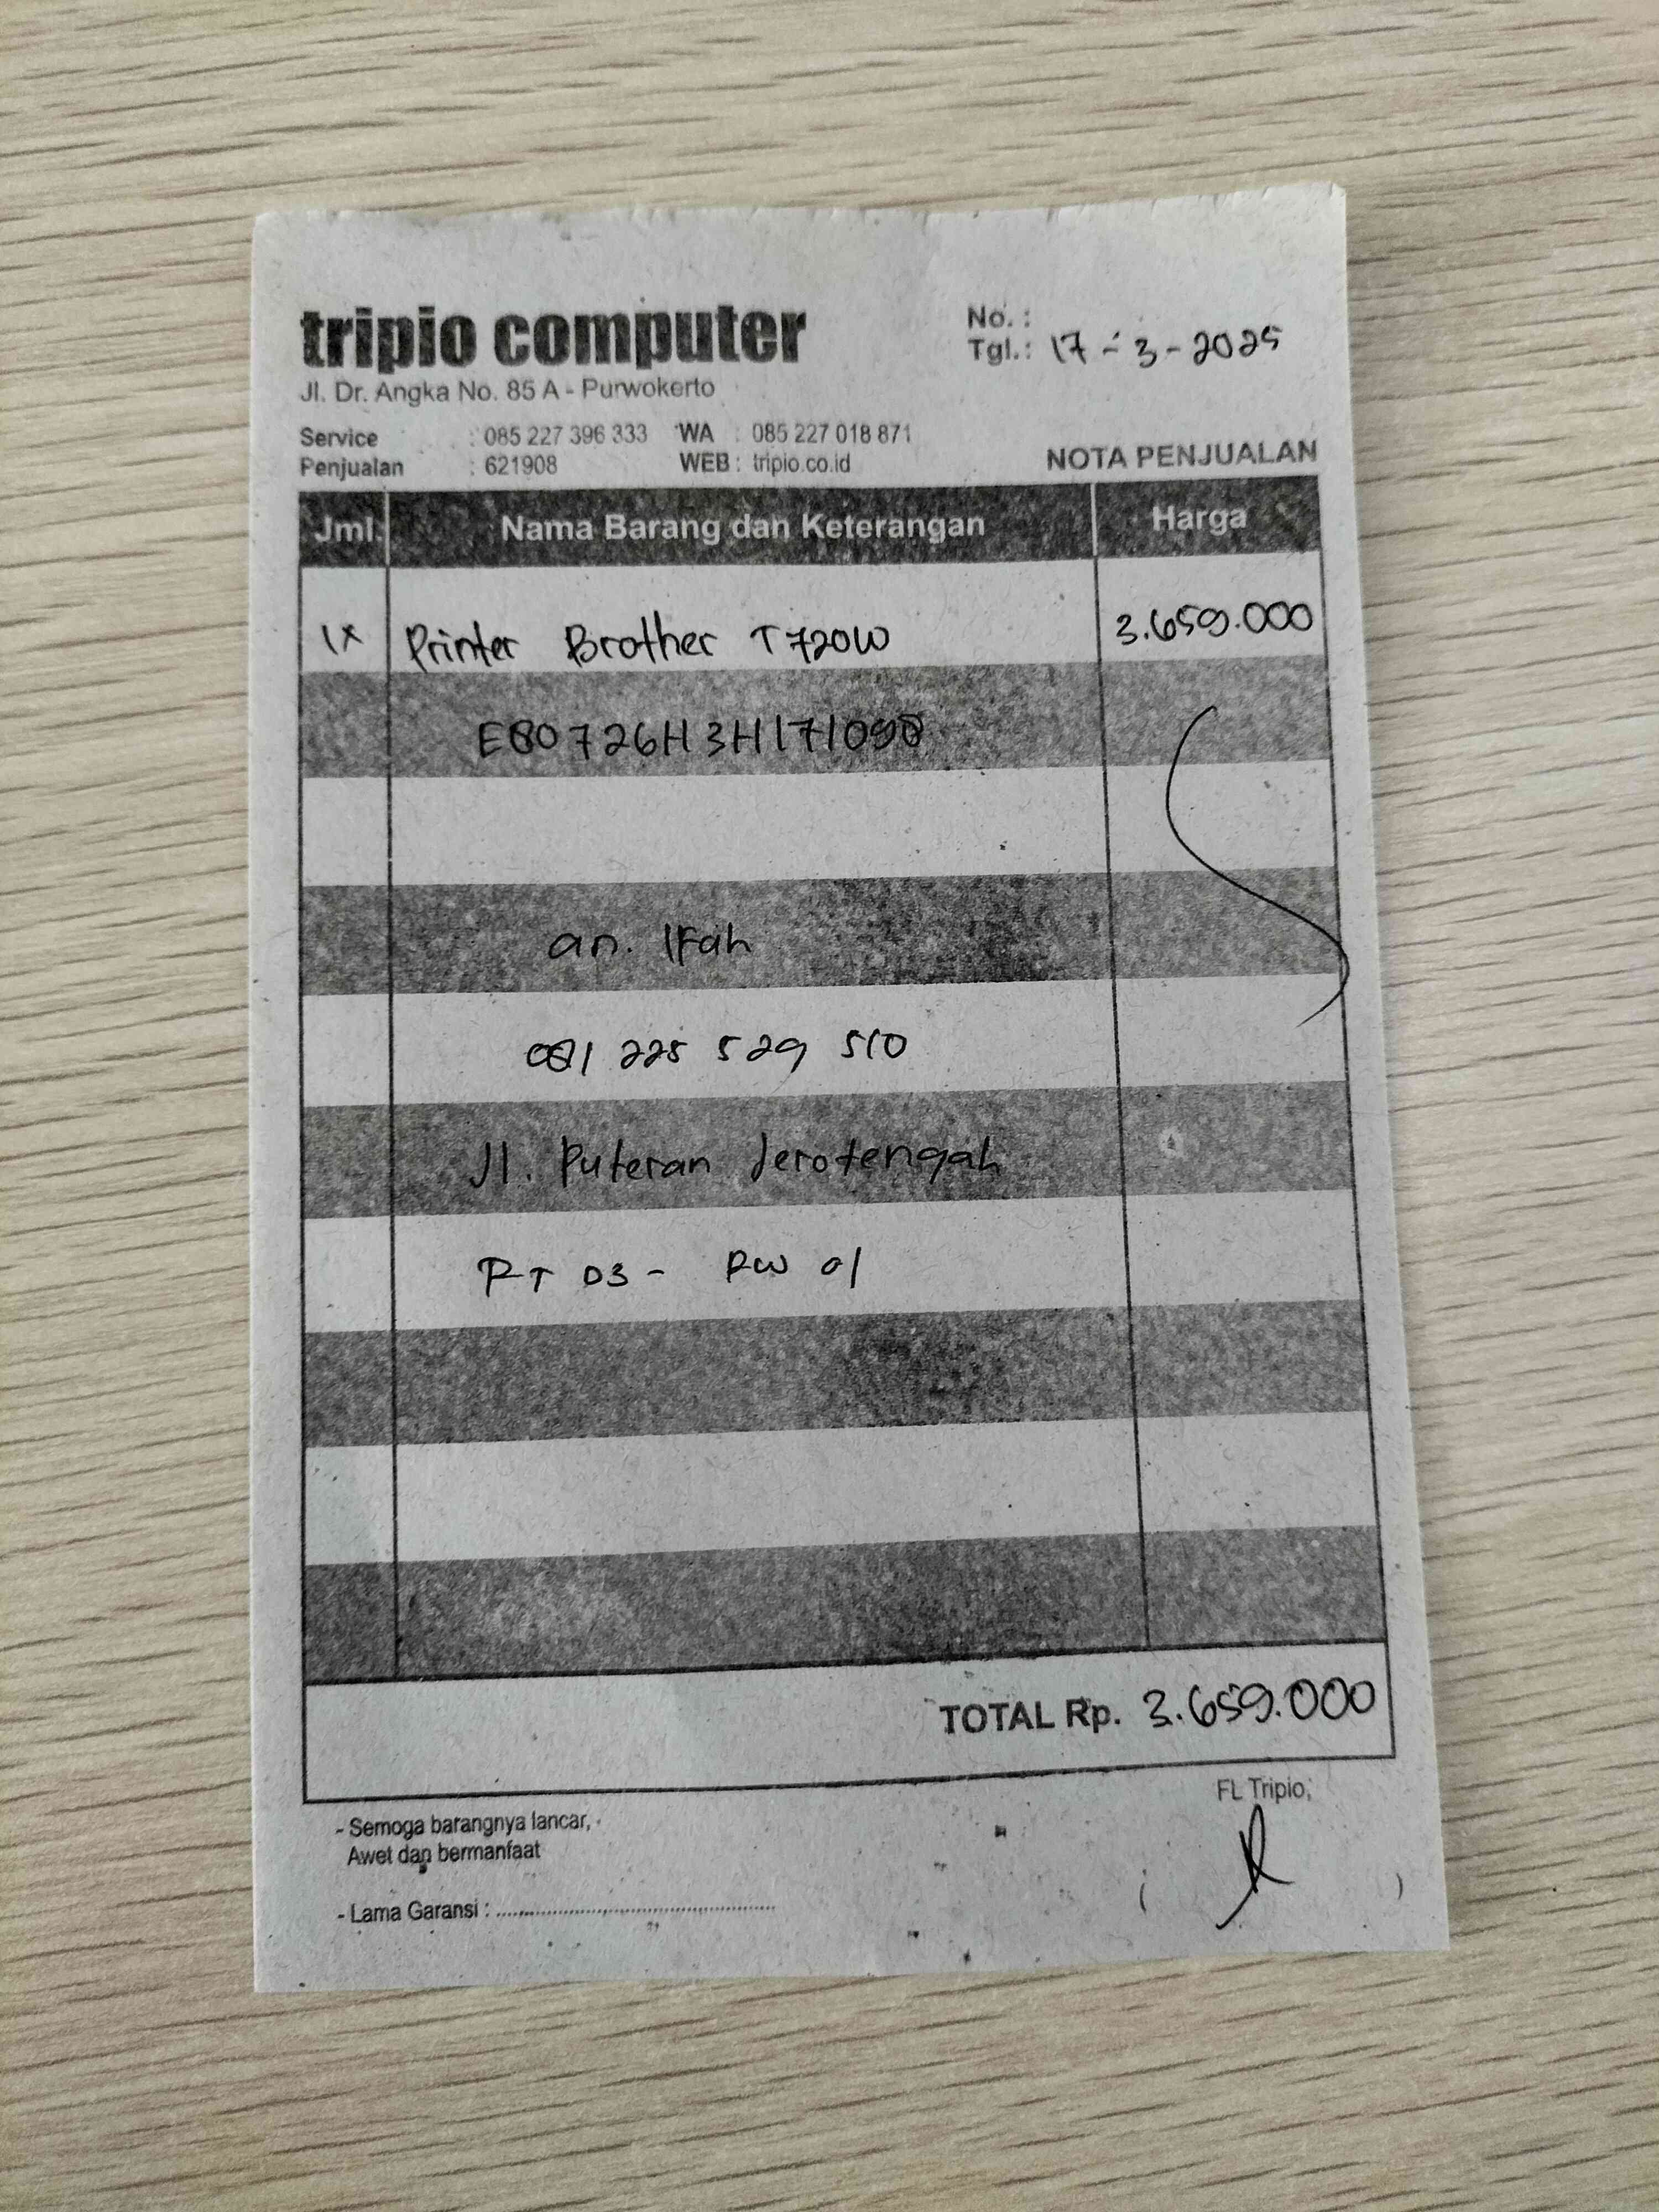 tripio computer
Jl. Dr. Angka No. 85 A - Purwokerto
No. :
Tgl. : 17 - 3 - 2025
Service : 085 227 396 333 WA : 085 227 018 871
Penjualan : 621908 WEB : tripio.co.id
NOTA PENJUALAN
Jml. Nama Barang dan Keterangan Harga
1x Printer Brother T720W 3.659.000
E80726H3H171098
an. Ifah
081 225 529 510
Jl. Puteran Jerotengah
RT 03 - RW 01
TOTAL Rp. 3.659.000
FL Tripio,
- Semoga barangnya lancar,
Awet dan bermanfaat
- Lama Garansi :